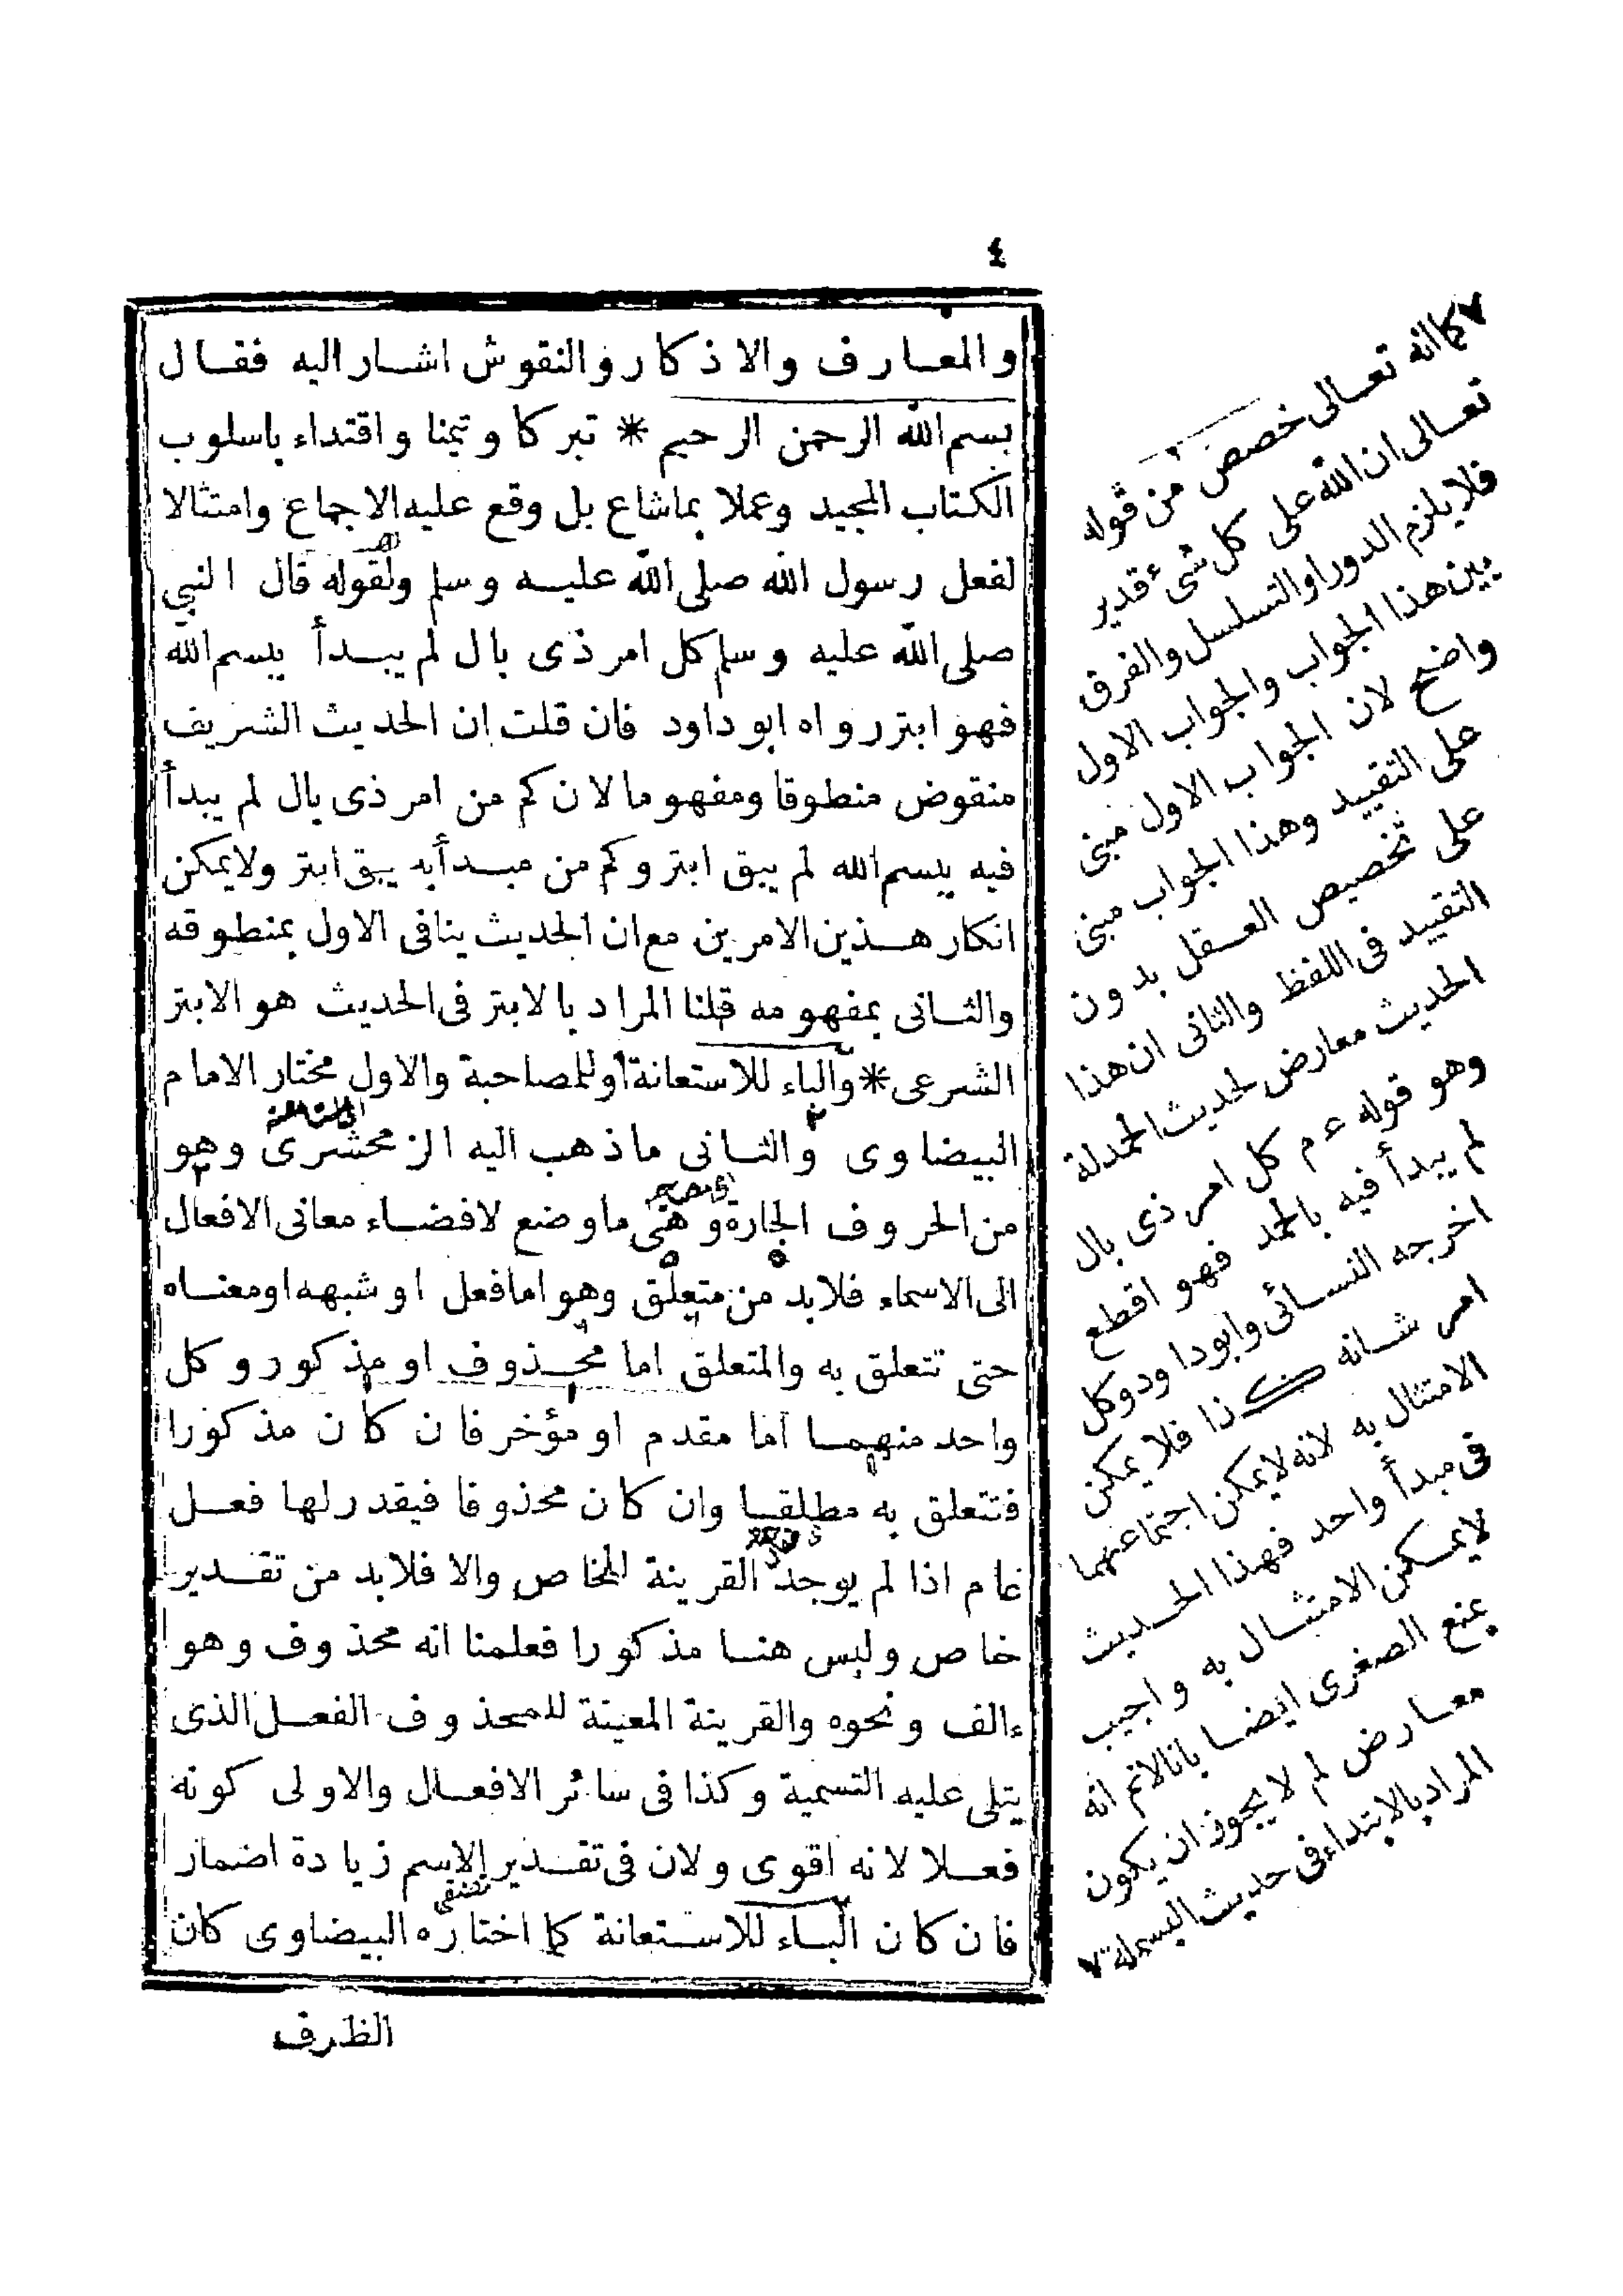 ٤
والمعارف والاذكار والنقوش اشار اليه فقال
بسم الله الرحمن الرحيم * تبركا وتيمنا واقتداء باسلوب
الكتاب المجيد وعملا بماشاع بل وقع عليه الاجماع وامتثالا
لفعل رسول الله صلى الله عليه وسلم ولقوله قال النبي
صلى الله عليه وسلم كل امر ذى بال لم يبدأ ببسم الله
فهو ابتر رواه ابو داود فان قلت ان الحديث الشريف
منقوض منطوقا ومفهوما لان كم من امر ذى بال لم يبدأ
فيه ببسم الله لم يبق ابتر وكم من مبدأ به يبق ابتر ولايمكن
انكار هذين الامرين مع ان الحديث ينافى الاول بمنطوقه
والثانى بمفهومه قلنا المراد بالابتر فى الحديث هو الابتر
الشرعى * والباء للاستعانة او للمصاحبة والاول مختار الامام
البيضاوى والثانى ماذهب اليه الزمخشرى وهو
من الحروف الجارة وهى ماوضع لافضاء معانى الافعال
الى الاسماء فلابد من متعلق وهو اما فعل او شبهه او معناه
حتى تتعلق به والمتعلق اما محذوف او مذكور وكل
واحد منهما اما مقدم او مؤخر فان كان مذكورا
فتتعلق به مطلقا وان كان محذوفا فيقدر لها فعل
عام اذا لم يوجد القرينة الخاص والا فلابد من تقدير
خاص وليس هنا مذكورا فعلمنا انه محذوف وهو
ءالف ونحوه والقرينة المعينة للمحذوف الفعل الذى
يتلى عليه التسمية وكذا فى سائر الافعال والاولى كونه
فعلا لانه اقوى ولان فى تقدير الاسم زيادة اضمار
فان كان الباء للاستعانة كما اختاره البيضاوى كان
الظرف
٧ كما انه تعالى خصص من قوله
تعالى ان الله على كل شىء قدير
فلا يلزم الدور او التسلسل والفرق
بين هذا الجواب والجواب الاول
واضح لان الجواب الاول مبنى
على التقييد وهذا الجواب مبنى
على تخصيص العقل بدون
التقييد فى اللفظ والثانى ان هذا
الحديث معارض لحديث الحمدلة
وهو قوله ءم كل امر ذى بال
لم يبدأ فيه بالحمد فهو اقطع
اخرجه النسائى وابوداود وكل
امر شانه كذا فلا يمكن
الامتثال به لانه لايمكن اجتماعهما
فى مبدأ واحد فهذا الحديث
لايمكن الامتثال به واجيب
بمنع الصغرى ايضا بانا لانم انه
معارض لم لايجوز ان يكون
المراد بالابتداء فى حديث البسملة ٧